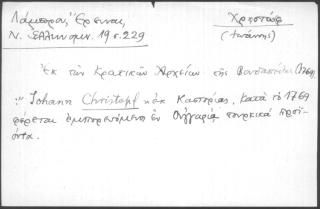 Λάμπρου, Ἔρευναι, Χρηστώφ
Ν. Ἑλληνομν. 19 σ. 229 (Ἰωάννης)
Ἐκ τῶν Κρατικῶν Ἀρχείων τῆς Βουδαπέστης (1769).
Johann Christopf ἐκ Καστορίας. Κατὰ τὸ 1769
φέρεται ἐμπορευόμενος ἐν Οὑγγαρίᾳ τουρκικὰ προϊ-
όντα.